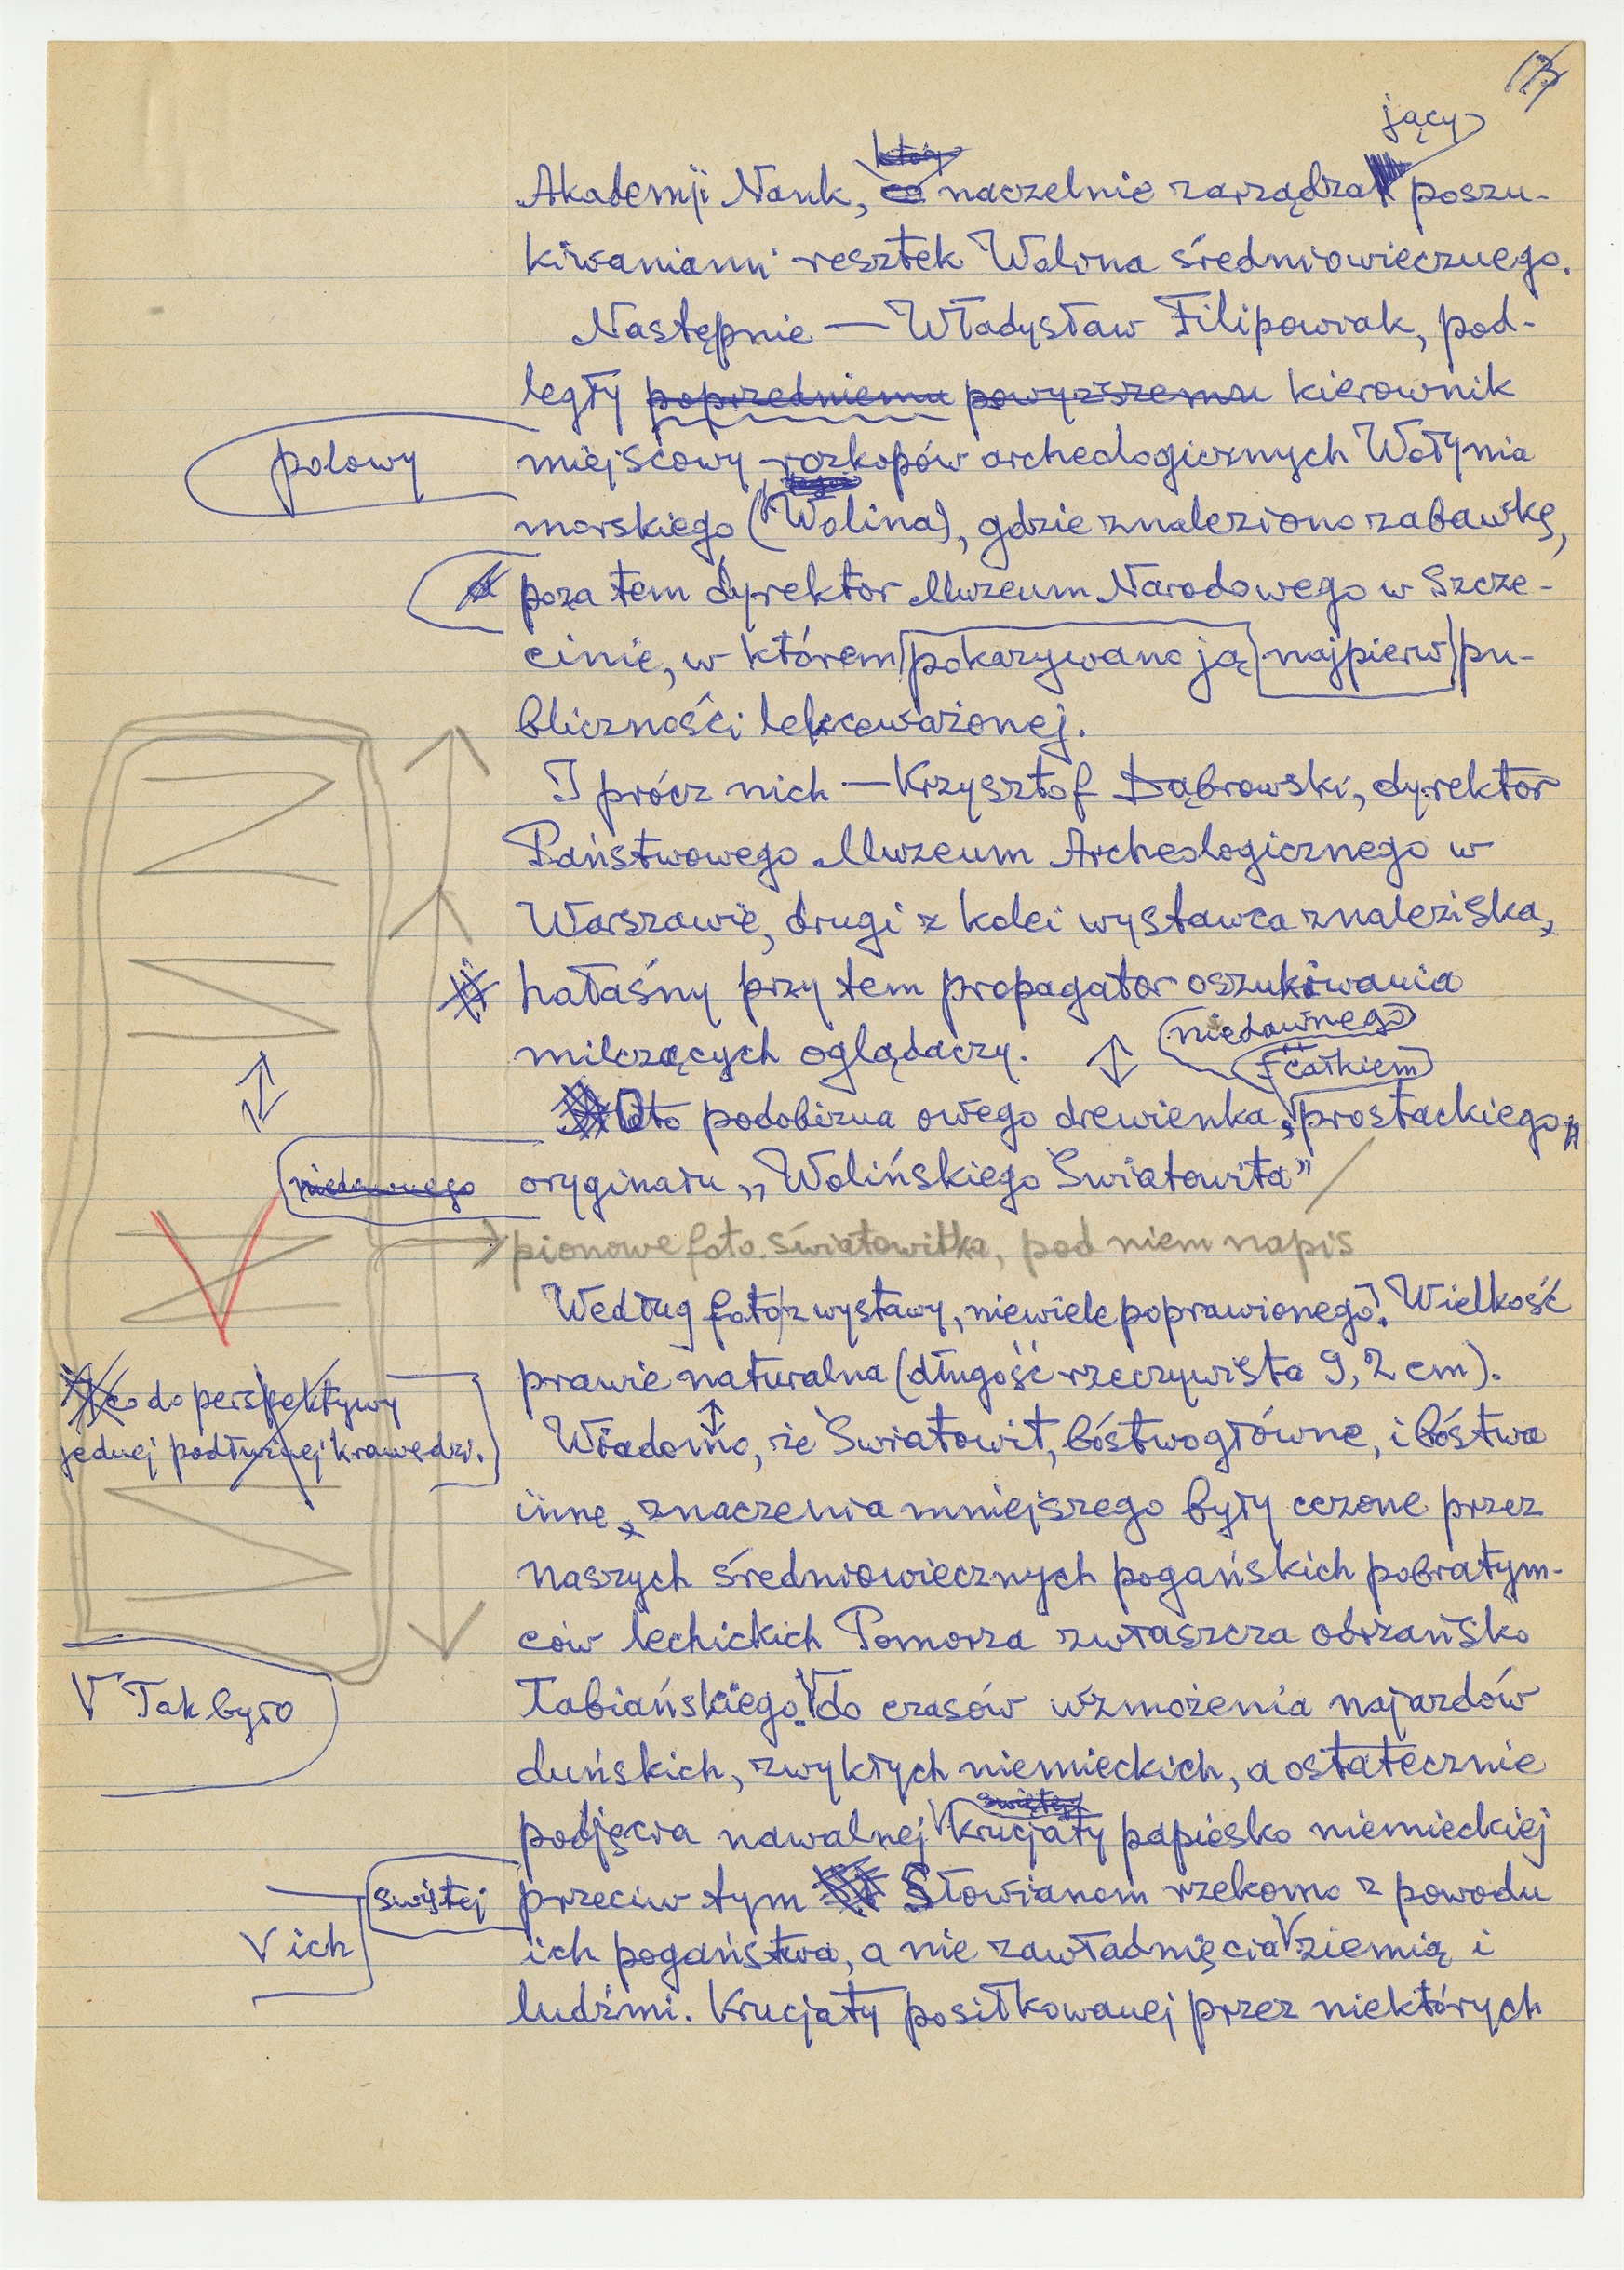 jący
który
Akademji Nauk, co naczelnie zarządzał poszu-
kiwaniami resztek Wolina średniowiecznego.
Następnie — Władysław Filipowiak, pod-
legły poprzedniemu powyższemu kierownik
polowy
miejscowy rozkopów archeologicznych Wołynia
morskiego (Wolina), gdzie znaleziono zabawkę,
poza tem dyrektor Muzeum Narodowego w Szcze-
cinie, w którem pokazywano ją najpierw pu-
bliczności lekceważonej.
I prócz nich — Krzysztof Dąbrowski, dyrektor
Państwowego Muzeum Archeologicznego w
Warszawie, drugi z kolei wystawca znaleziska,
i hałaśny przy tem propagator oszukiwania
milczących oglądaczy.
niedawnego
całkiem
Oto podobizna owego drewienka, prostackiego
niedawnego
oryginału „Wolińskiego Światowita”
pionowe foto. światowitka, pod niem napis
Według foto z wystawy, niewiele poprawionego. Wielkość
prawie naturalna (długość rzeczywista 9,2 cm).
co do perspektywy
jednej podłużnej krawędzi.
Wiadomo, że Światowit, bóstwo główne, i bóstwa
inne, znaczenia mniejszego były czczone przez
naszych średniowiecznych pogańskich pobratym-
ców lechickich Pomorza zwłaszcza odrzańsko
V Tak było
łabiańskiego. V do czasów wzmożenia najazdów
duńskich, zwykłych niemieckich, a ostatecznie
świętej
podjęcia nawalnej V krucjaty papiesko niemieckiej
świętej
przeciw tym Słowianom rzekomo z powodu
V ich
ich pogaństwa, a nie zawładnięcia V ziemią i
ludźmi. Krucjaty posiłkowanej przez niektórych